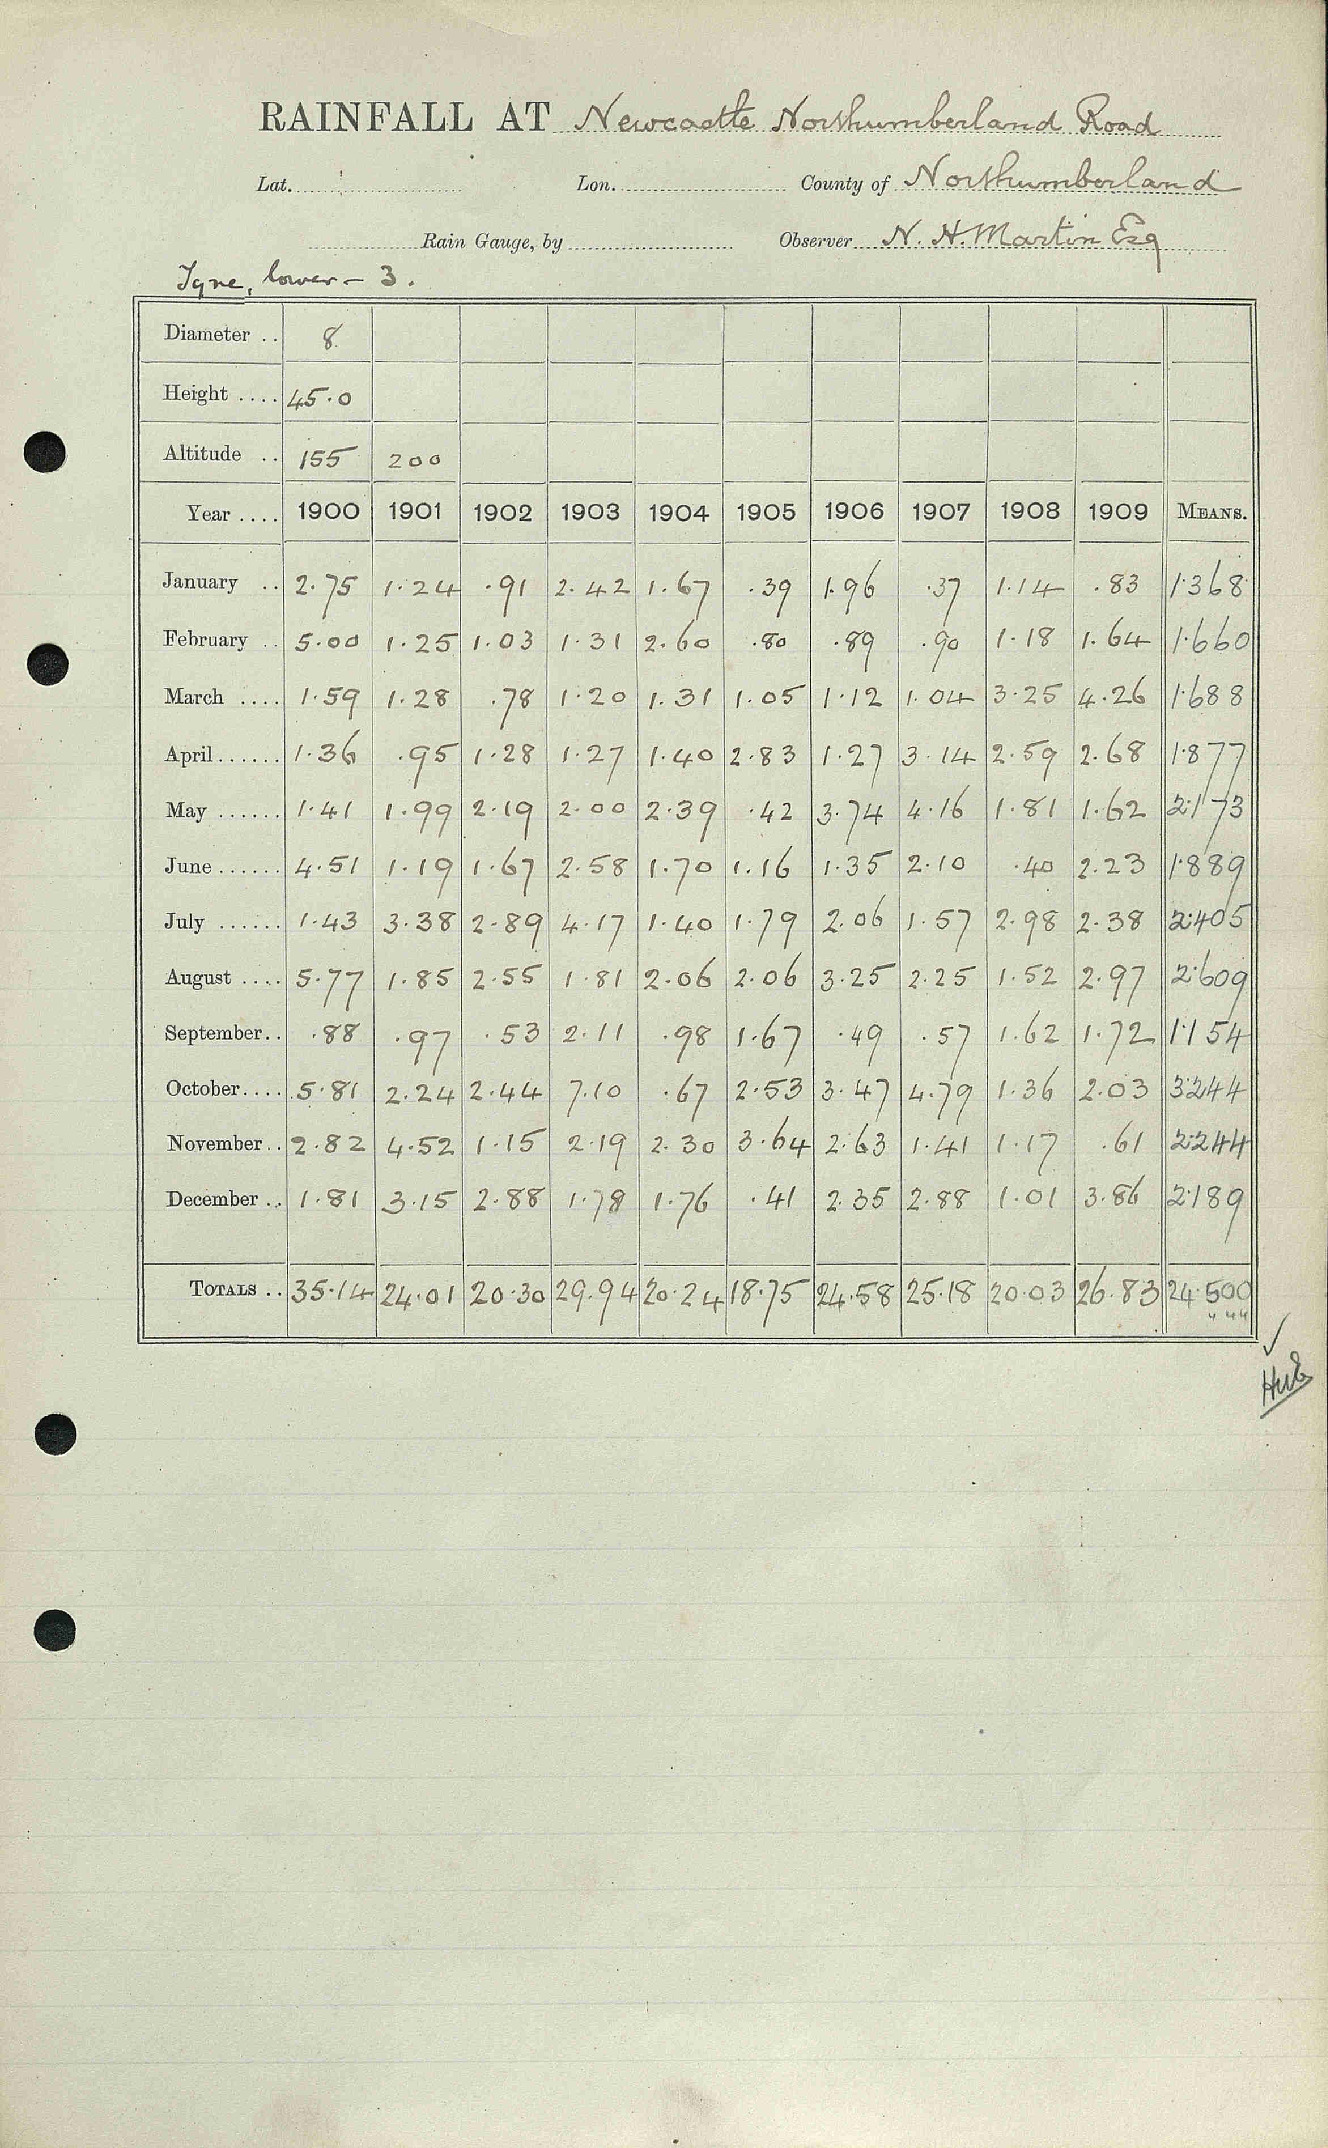 RAINFALL AT Newcastle Northumberland Road
Lat. Lon. County of Northumberland
Rain Gauge, by Observer N. H. Martin Esq
Tyne, lower - 3.
Diameter .. 8
Height .... 45.0
Altitude .. 155 200
Year .... 1900 1901 1902 1903 1904 1905 1906 1907 1908 1909 MEANS.
January .. 2.75 1.24 .91 2.42 1.67 .39 1.96 .37 1.14 .83 1.368
February .. 5.00 1.25 1.03 1.31 2.60 .80 .89 .90 1.18 1.64 1.660
March .... 1.59 1.28 .78 1.20 1.31 1.05 1.12 1.04 3.25 4.26 1.688
April...... 1.36 .95 1.28 1.27 1.40 2.83 1.27 3.14 2.59 2.68 1.877
May ...... 1.41 1.99 2.19 2.00 2.39 .42 3.74 4.16 1.81 1.62 2.173
June...... 4.51 1.19 1.67 2.58 1.70 1.16 1.35 2.10 .40 2.23 1.889
July ...... 1.43 3.38 2.89 4.17 1.40 1.79 2.06 1.57 2.98 2.38 2.405
August .... 5.77 1.85 2.55 1.81 2.06 2.06 3.25 2.25 1.52 2.97 2.609
September.. .88 .97 .53 2.11 .98 1.67 .49 .57 1.62 1.72 1.154
October.... 5.81 2.24 2.44 7.10 .67 2.53 3.47 4.79 1.36 2.03 3.244
November.. 2.82 4.52 1.15 2.19 2.30 3.64 2.63 1.41 1.17 .61 2.244
December .. 1.81 3.15 2.88 1.78 1.76 .41 2.35 2.88 1.01 3.86 2.189
TOTALS .. 35.14 24.01 20.30 29.94 20.24 18.75 24.58 25.18 20.03 26.83 24.500